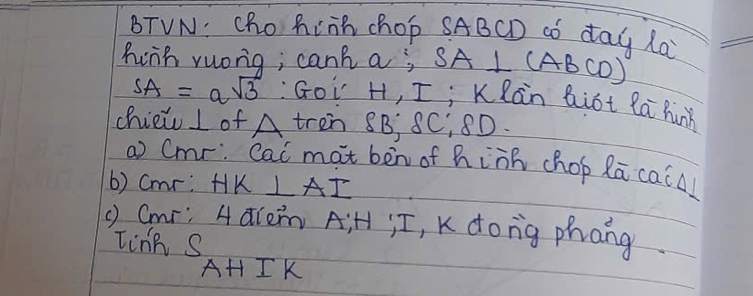 BTVN: Cho hình chóp SABCD có đáy là
hình vuông; cạnh a; SA ⊥ (ABCD)
SA = a√3 : Gọi H, I; K lần lượt là hình
chiếu ⊥ of A trên SB; SC; SD.
a) Cmr: Các mặt bên of hình chóp là các Δ⊥
b) Cmr: HK ⊥ AI
c) Cmr: 4 điểm A;H ;I, K đồng phẳng.
Tính S AHIK